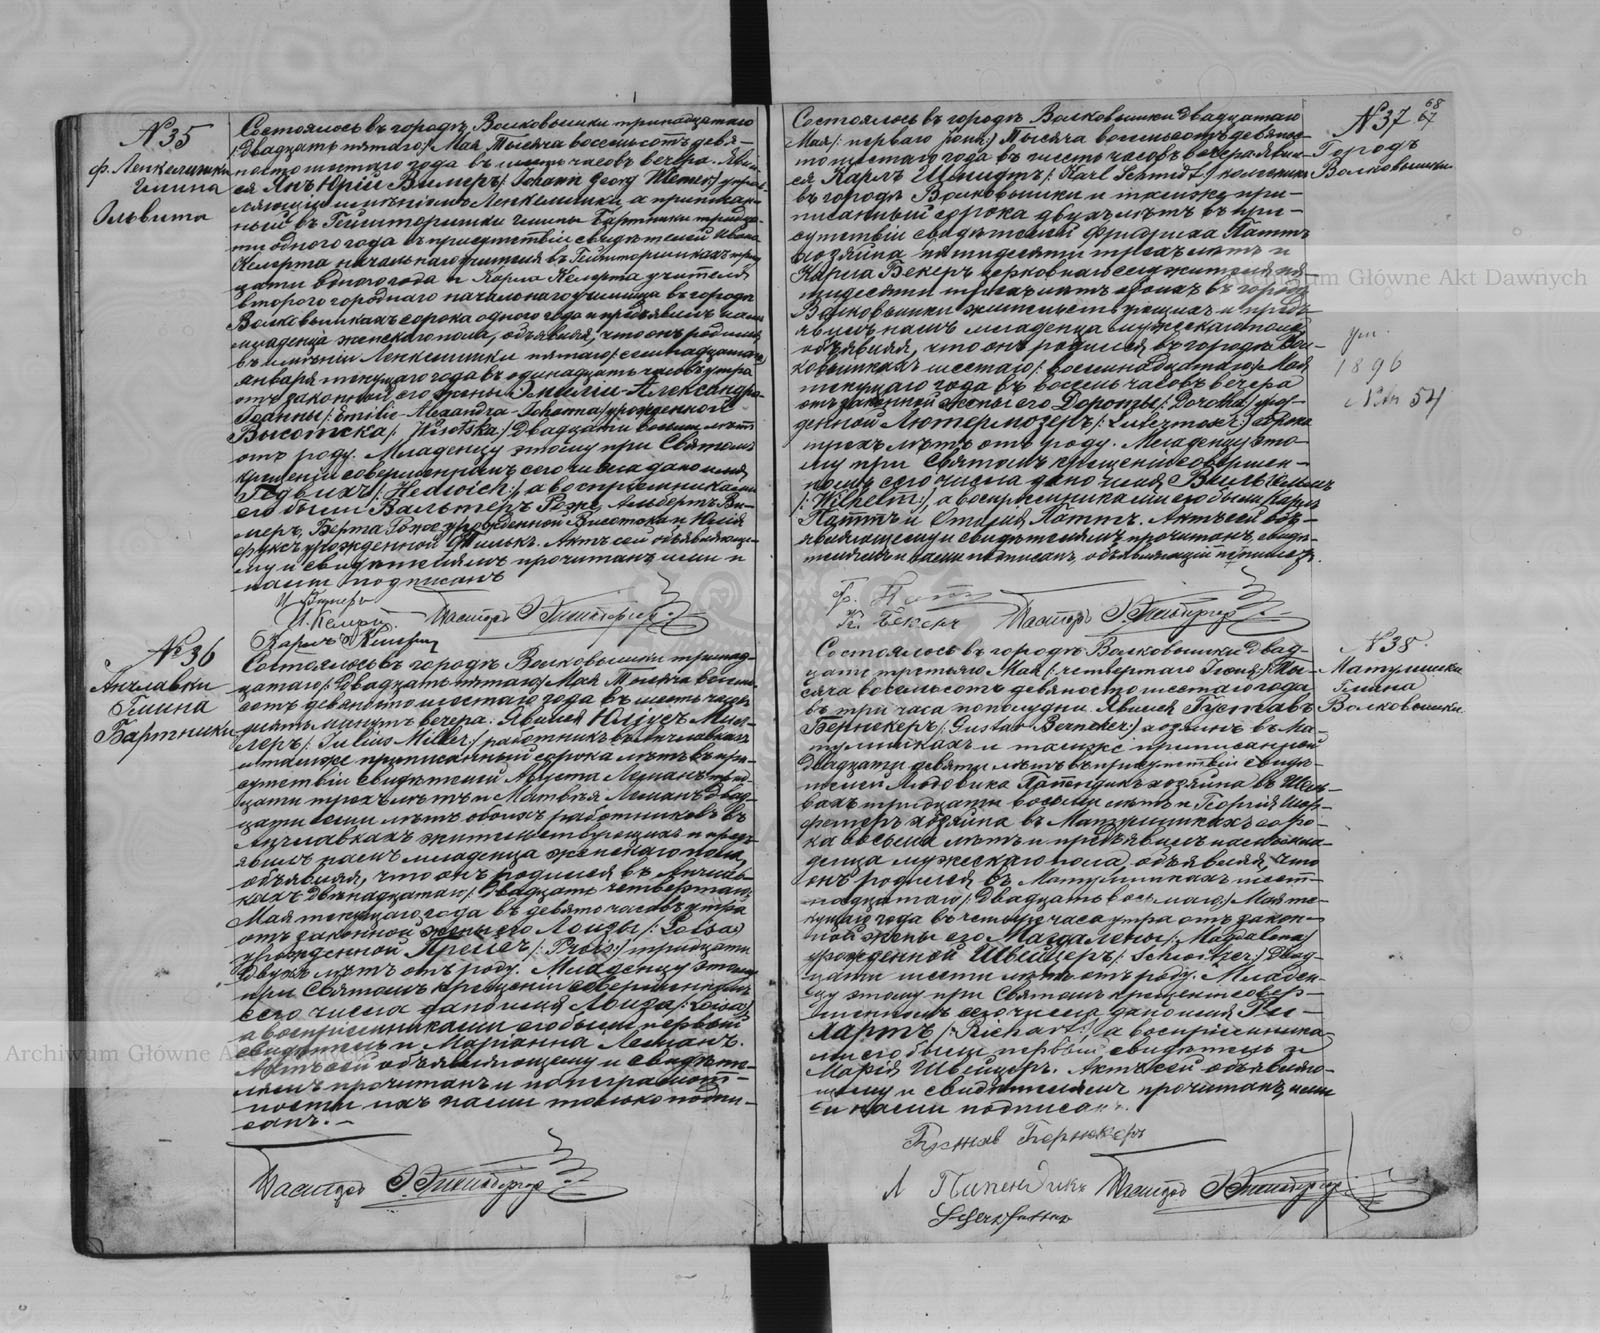 № 35
ф. Ленкелишки
Гмина
Ольвита
Состоялось въ городѣ Волковышки тринадцатаго
/:Двадцать пятаго:/ Мая Тысяча восемьсотъ девя-
носто шестаго года въ шесть часовъ вечера. Явил
ся Янъ Юрiй Вимеръ /: Johann Georg Wiemer:/ управ
ляющiй имѣнiемъ Ленкелишки а приписан-
ный въ гмины Бартники тридца
ти одного года въ присутствiи свидѣтелей Ивана
Кемрта начальнаго учителя въ трид
цати одного года и Карла Кемрта учителя
втораго городнаго начальнаго училища въ городѣ
Волковышкахъ сорока одного года и предъявилъ намъ
младенца женскаго пола, объявляя, что онъ родился
въ имѣнiи Ленкелишки пятаго/семнадцатаго
Января текущаго года въ одинадцать часовъ утра
отъ законной его жены Эмилiи-Александры
Iоанны /: Emilie-Alexandra-Johanna:/ урожденной
Высотска /: Wisotska:/ Двадцати восьми лѣтъ
отъ роду. Младенцу этому при Святомъ
крещенiи совершенномъ сего числа дано имя
Гедвихъ /: Hedwich:/, а воспрiемниками
его были Вальтеръ Реже, Альбертъ Ви-
меръ, Берта урожденной Висотска и Юлiя
Фуксъ урожденной Тилькъ. Актъ сей объявляюще-
му и свидѣтелямъ прочитанъ ими и
нами подписанъ
И Вимеръ
И. Кемрт.
Карлъ Кемрт
Пасторъ
№ 36
Анчлавки
Гмина
Бартники
Состоялось въ городѣ Волковышки тринад-
цатаго /: Двадцать пятаго:/ Мая Тысяча восемь
сотъ девяносто шестаго года въ шесть часовъ
десять минутъ вечера. Явился Юлiусъ Мил-
леръ /: Julius Miller:/ работникъ въ Анчлавкахъ
и также приписанный сорока лѣтъ въ при-
сутствiи свидѣтелей Августа Леманъ трид
цати трехъ лѣтъ и Матвѣя Леманъ Двад-
цати семи лѣтъ обоихъ работниковъ въ
Анчлавкахъ жительствующихъ и предъ-
явилъ намъ младенца женскаго пола,
объявляя, что онъ родился въ Анчлав-
кахъ Двѣнадцатаго /: Двадцать четвертаго:/
Мая текущаго года въ девять часовъ утра
отъ законной жены его Лоизы /: Loisa:/
урожденной Прейсъ /: Preis:/ тридцати
Двухъ лѣтъ отъ роду. Младенцу этому
при Святомъ крещенiи совершенномъ
сего числа дано имя Лоиза /: Loisa:/
а воспрiемниками его были первый
свидѣтель и Марiанна Леманъ.
Актъ сей объявляющему и свидѣте-
лямъ прочитанъ и по неграмот-
ности ихъ нами только подпи-
санъ.-
Пасторъ
68
67
№ 37
Городъ
Волковышки
Состоялось въ городѣ Волковышки Двадцатаго
Мая /: перваго Iюня:/ Тысяча восемьсотъ девянос-
то шестаго года въ шесть часовъ вечера явил-
ся Карлъ Шмидтъ /: Karl Schmidt:/
въ городѣ Волковышки и также при-
писанный сорока двухъ лѣтъ въ при-
сутствiи свидѣтелей Фридриха Паттъ
хозяина пятидесяти трехъ лѣтъ и
Карла Бекеръ церковнаго служителя пя-
тидесяти трехъ лѣтъ обоихъ въ городѣ
Волковышки жительствующихъ и предъ-
явилъ намъ младенца мужескаго пола
объявляя, что онъ родился въ городѣ Вол-
ковышкахъ шестаго /: восемнадцатаго:/ Мая
текущаго года въ восемь часовъ вечера
отъ законной жены его Доротэы /: Dorothea:/ уро-
жденной Лютермозеръ /: Lutermoser:/ сорока
трехъ лѣтъ отъ роду. Младенцу это-
му при Святомъ крещенiи совершен-
номъ сего числа дано имя Вильгельмъ
/: Wilhelm:/, а воспрiемниками его были Карлъ
Паттъ и Отилiя Паттъ. Актъ сей объ-
являющему и свидѣтелямъ прочитанъ свидѣ-
телями и нами подписанъ, объявляющiй
ум.
1896
№ 54
Ф. Патъ
К. Бекеръ
Пасторъ
№ 38
Матулишки
Гмина
Волковышки
Состоялось въ городѣ Волковышки Двад-
цать третьяго Мая /: четвертаго Iюня:/ Ты-
сяча восемьсотъ девяносто шестаго года
въ три часа пополудни. Явился Густавъ
Бернекеръ /: Gustav Berneker:/ хозяинъ въ Ма-
тулишкахъ и также приписанной
Двадцати девяти лѣтъ въ присутствiи свидѣ-
телей Людовика Папендикъ хозяина въ
вахъ тридцати восьми лѣтъ и Георгiя Шер-
фетеръ хозяина въ Матулишкахъ соро-
ка восьми лѣтъ и предъявилъ намъ мла-
денца мужескаго пола объявляя, что
онъ родился въ Матулишкахъ шест-
надцатаго /: Двадцать восьмаго:/ Мая те-
кущаго года въ четыре часа утра отъ закон-
ной жены его Магдалены /: Magdalena:/
урожденной Швейцеръ /: Schweitzer:/ Двад-
цати шести лѣтъ отъ роду. Младен-
цу этому при Святомъ крещенiи совер-
шенномъ сего числа дано имя Ри-
хартъ /: Richart:/, а воспрiемника-
ми его были первый свидѣтель и
Марiя Швейцеръ. Актъ сей объявляю-
щему и свидѣтелямъ прочитанъ, ими
и нами подписанъ.
Густав Бернекеръ
Л Папендикъ
Пасторъ
Archiwum Główne Akt Dawnych
Archiwum Główne Akt Dawnych